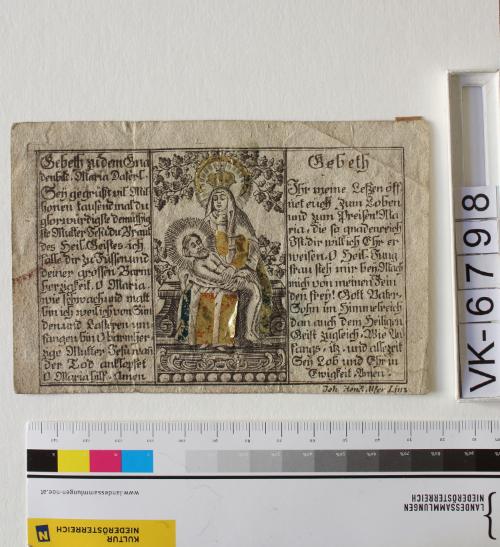 Gebeth zu dem Gna
denbild Maria Taferl.
Sey gegrüßt vil Mil
lionen tausend mal du
glorwürdigste demüthig
ste Mutter Jesu du Braut
des Heil. Geistes ich
falle dir zu Füssen und
deiner grossen Barm
herzigkeit. O Maria
wie schwach und matt
bin ich weil ich von Sün
den und Lastern um
fangen bin O barmher
zige Mutter Jesu wan
der Tod anklopfet
O Maria hilf. Amen
Gebeth
Ihr meine Leßzen öff
net euch, zum Loben
und zum Preisen Ma
ria, die so gnadenreich
Ist dir will ich Ehr er
weisen. O Heil. Jung
frau steh mir bey Mach
mich von meinen Fein
den frey! Gott Vater
Sohn im Himmelreich
dan auch dem Heiligen
Geist zugleich, Wie An
fangs, itz, und allezeit
Sey Lob und Ehr in
Ewigkeit Amen.
Joh. Linz
VK-6798
www.landessammlungen-noe.at
LANDESSAMMLUNGEN
NIEDERÖSTERREICH
N
KULTUR
NIEDERÖSTERREICH